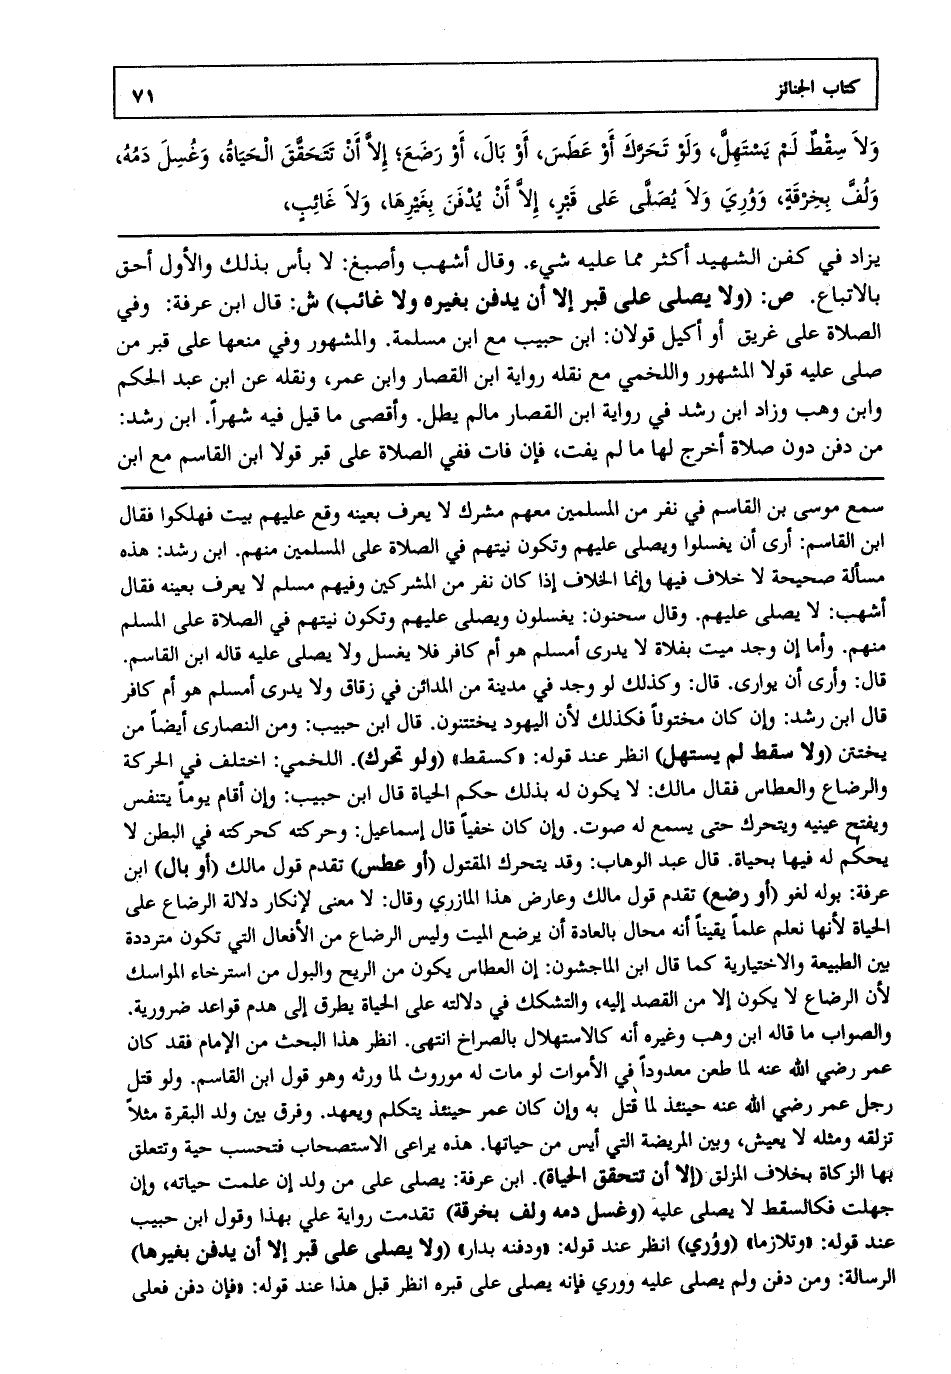 كتاب الجنائز
٧١
وَلاَ سِقْطٌ لَمْ يَسْتَهِلَّ، وَلَوْ تَحَرَّكَ أَوْ عَطَسَ، أَوْ بَالَ، أَوْ رَضَعَ؛ إِلاَّ أَنْ تَتَحَقَّقَ الْحَيَاةُ، وَغُسِلَ دَمُهُ،
وَلُفَّ بِخِرْقَةٍ، وَوُرِيَ وَلاَ يُصَلَّى عَلى قَبْرٍ، إِلاَّ أَنْ يُدْفَنَ بِغَيْرِهَا، وَلاَ غَائِبٍ،
يزاد في كفن الشهيد أكثر مما عليه شيء. وقال أشهب وأصبغ: لا بأس بذلك والأول أحق
بالاتباع. ص: (ولا يصلى على قبر إلا أن يدفن بغيره ولا غائب) ش: قال ابن عرفة: وفي
الصلاة على غريق أو أكيل قولان: ابن حبيب مع ابن مسلمة. والمشهور وفي منعها على قبر من
صلى عليه قولا المشهور واللخمي مع نقله رواية ابن القصار وابن عمر، ونقله عن ابن عبد الحكم
وابن وهب وزاد ابن رشد في رواية ابن القصار مالم يطل. وأقصى ما قيل فيه شهراً. ابن رشد:
من دفن دون صلاة أخرج لها ما لم يفت، فإن فات ففي الصلاة على قبر قولا ابن القاسم مع ابن
سمع موسى بن القاسم في نفر من المسلمين معهم مشرك لا يعرف بعينه وقع عليهم بيت فهلكوا فقال
ابن القاسم: أرى أن يغسلوا ويصلى عليهم وتكون نيتهم في الصلاة على المسلمين منهم. ابن رشد: هذه
مسألة صحيحة لا خلاف فيها وإنما الخلاف إذا كان نفر من المشركين وفيهم مسلم لا يعرف بعينه فقال
أشهب: لا يصلى عليهم. وقال سحنون: يغسلون ويصلى عليهم وتكون نيتهم في الصلاة على المسلم
منهم. وأما إن وجد ميت بفلاة لا يدرى أمسلم هو أم كافر فلا يغسل ولا يصلى عليه قاله ابن القاسم.
قال: وأرى أن يوارى. قال: وكذلك لو وجد في مدينة من المدائن في زقاق ولا يدرى أمسلم هو أم كافر
قال ابن رشد: وإن كان مختوناً فكذلك لأن اليهود يختتنون. قال ابن حبيب: ومن النصارى أيضاً من
يختتن (ولا سقط لم يستهل) انظر عند قوله: «كسقط» (ولو تحرك). اللخمي: اختلف في الحركة
والرضاع والعطاس فقال مالك: لا يكون له بذلك حكم الحياة قال ابن حبيب: وإن أقام يوماً يتنفس
ويفتح عينيه ويتحرك حتى يسمع له صوت. وإن كان خفياً قال إسماعيل: وحركته كحركته في البطن لا
يحكم له فيها بحياة. قال عبد الوهاب: وقد يتحرك المقتول (أو عطس) تقدم قول مالك (أو بال) ابن
عرفة: بوله لغو (أو رضع) تقدم قول مالك وعارض هذا المازري وقال: لا معنى لإنكار دلالة الرضاع على
الحياة لأنها نعلم علماً يقيناً أنه محال بالعادة أن يرضع الميت وليس الرضاع من الأفعال التي تكون مترددة
بين الطبيعة والاختيارية كما قال ابن الماجشون: إن العطاس يكون من الريح والبول من استرخاء المواسك
لأن الرضاع لا يكون إلا من القصد إليه، والتشكك في دلالته على الحياة يطرق إلى هدم قواعد ضرورية.
والصواب ما قاله ابن وهب وغيره أنه كالاستهلال بالصراخ انتهى. انظر هذا البحث من الإمام فقد كان
عمر رضي الله عنه لما طعن معدوداً في الأموات لو مات له موروث لما ورثه وهو قول ابن القاسم. ولو قتل
رجل عمر رضي الله عنه حينئذ لما قتل به وإن كان عمر حينئذ يتكلم ويعهد. وفرق بين ولد البقرة مثلاً
تزلقه ومثله لا يعيش، وبين المريضة التي أيس من حياتها. هذه يراعى الاستصحاب فتحسب حية وتتعلق
بها الزكاة بخلاف المزلق (إلا أن تتحقق الحياة). ابن عرفة: يصلى على من ولد إن علمت حياته، وإن
جهلت فكالسقط لا يصلى عليه (وغسل دمه ولف بخرقة) تقدمت رواية علي بهذا وقول ابن حبيب
عند قوله: «وتلازما» (ووُري) انظر عند قوله: «ودفنه بدار» (ولا يصلى على قبر إلا أن يدفن بغيرها)
الرسالة: ومن دفن ولم يصلى عليه ووري فإنه يصلى على قبره انظر قبل هذا عند قوله: «فإن دفن فعلى